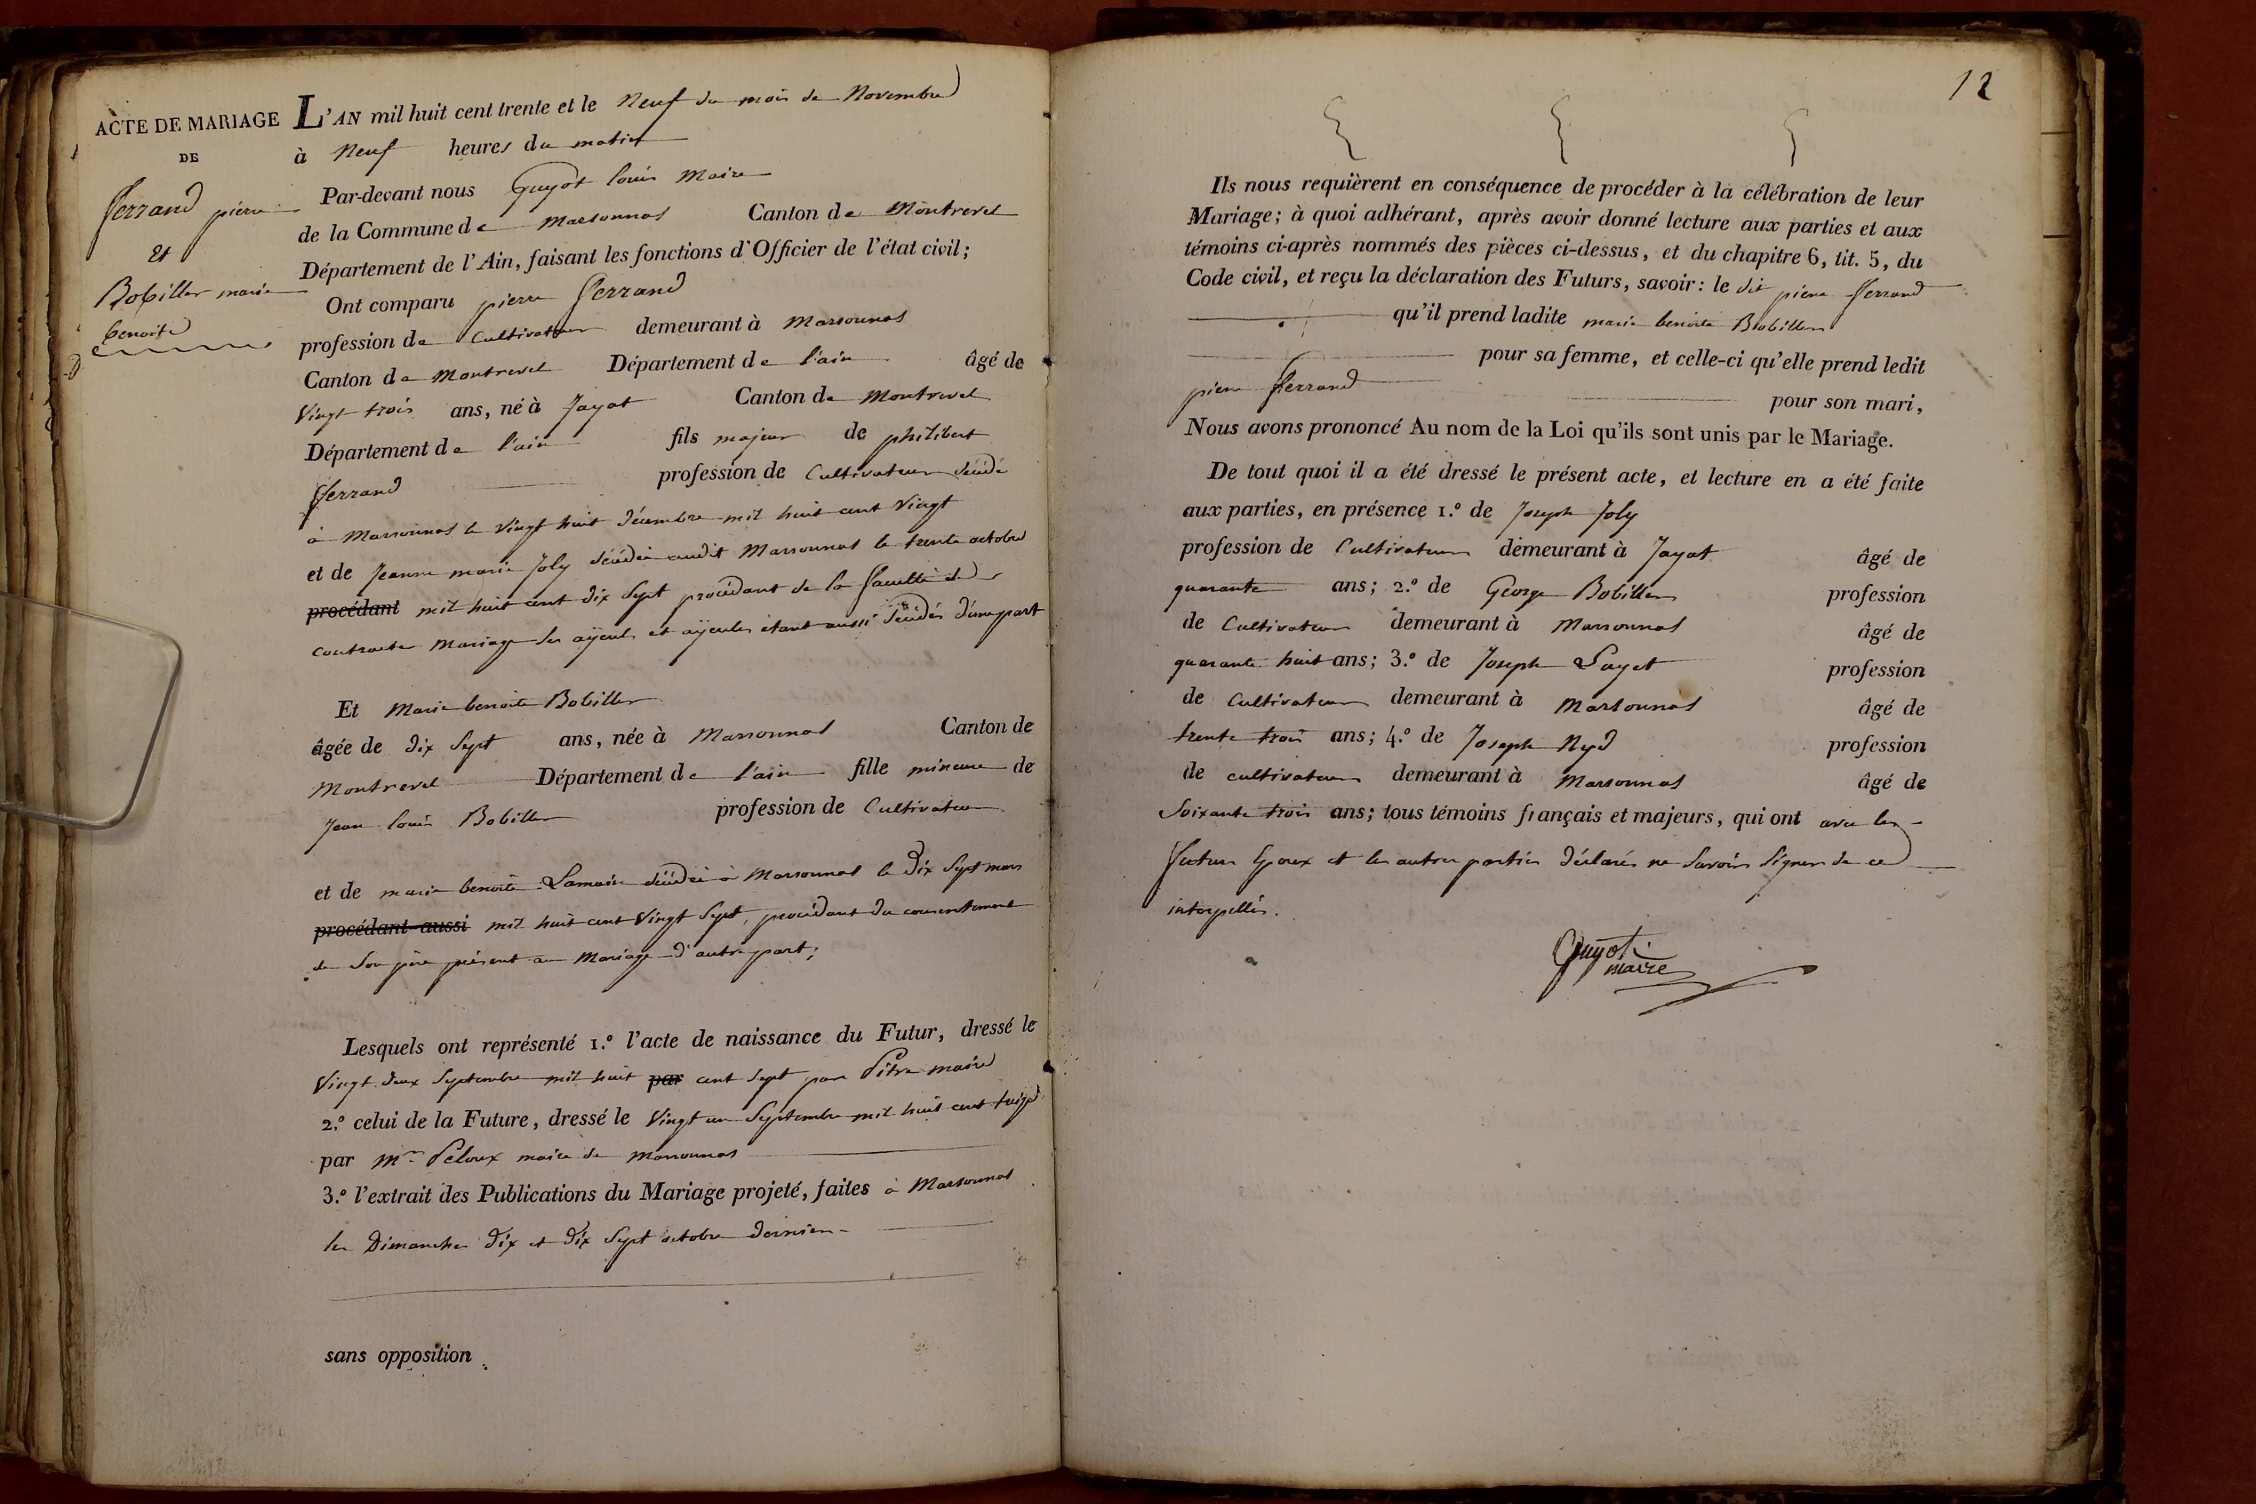 ACTE DE MARIAGE
DE
ferrand pierre
Et
Bobiller marie
benoite
L'AN mil huit cent trente et le Neuf du mois de Novembre
à Neuf heures du matin
Par-devant nous Guyot louis Maire
de la Commune de marsonnas Canton de Montrevel
Département de l'Ain, faisant les fonctions d'Officier de l'état civil;
Ont comparu pierre ferrand
profession de Cultivateur demeurant à Marsonnas
Canton de Montrevel Département de l'ain âgé de
Vingt trois ans, né à Jayat Canton de Montrevel
Département de l'ain fils majeur de philibert
ferrand profession de Cultivateur décédé
à Marsonnas le vingt huit décembre mil huit cent vingt
et de Jeanne marie Joly décédée audit Marsonnas le trente octobre
procédant mil huit cent dix sept procédant de la faculté de
contracter Mariage ses ayeuls et ayeules étant aussi décédés d'une part
Et Marie benoite Bobiller
âgée de dix sept ans, née à Marsonnas Canton de
Montrevel Département de l'ain fille mineure de
Jean louis Bobiller profession de Cultivateur
et de marie benoite Lamain décédée à Marsonnas le dix sept mars
procédant aussi mil huit cent vingt sept, procédant du consentement
de son père présent au Mariage d'autre part;
Lesquels ont représenté 1.º l'acte de naissance du Futur, dressé le
Vingt deux Septembre mil huit par cent sept par Pitre maire
2.º celui de la Future, dressé le Vingt un Septembre mil huit cent treize
par Mr Peloux maire de Marsonnas
3.º l'extrait des Publications du Mariage projeté, faites à Marsonnas
les Dimanches dix et dix sept octobre dernier
sans opposition
12
Ils nous requièrent en conséquence de procéder à la célébration de leur
Mariage; à quoi adhérant, après avoir donné lecture aux parties et aux
témoins ci-après nommés des pièces ci-dessus, et du chapitre 6, tit. 5, du
Code civil, et reçu la déclaration des Futurs, savoir: le dit pierre ferrand
qu'il prend ladite marie benoite Bobiller
pour sa femme, et celle-ci qu'elle prend ledit
pierre ferrand pour son mari,
Nous avons prononcé Au nom de la Loi qu'ils sont unis par le Mariage.
De tout quoi il a été dressé le présent acte, et lecture en a été faite
aux parties, en présence 1.º de Joseph Joly
profession de Cultivateur demeurant à Jayat âgé de
quarante ans; 2.º de George Bobiller profession
de Cultivateur demeurant à Marsonnas âgé de
quarante huit ans; 3.º de Joseph profession
de Cultivateur demeurant à Marsonnas âgé de
trente trois ans; 4.º de Joseph Nyd profession
de cultivateur demeurant à Marsonnas âgé de
Soixante trois ans; tous témoins français et majeurs, qui ont avec les
futurs Epoux et les autres parties déclarés ne savoir signer de ce
interpellés.
Guyot
maire